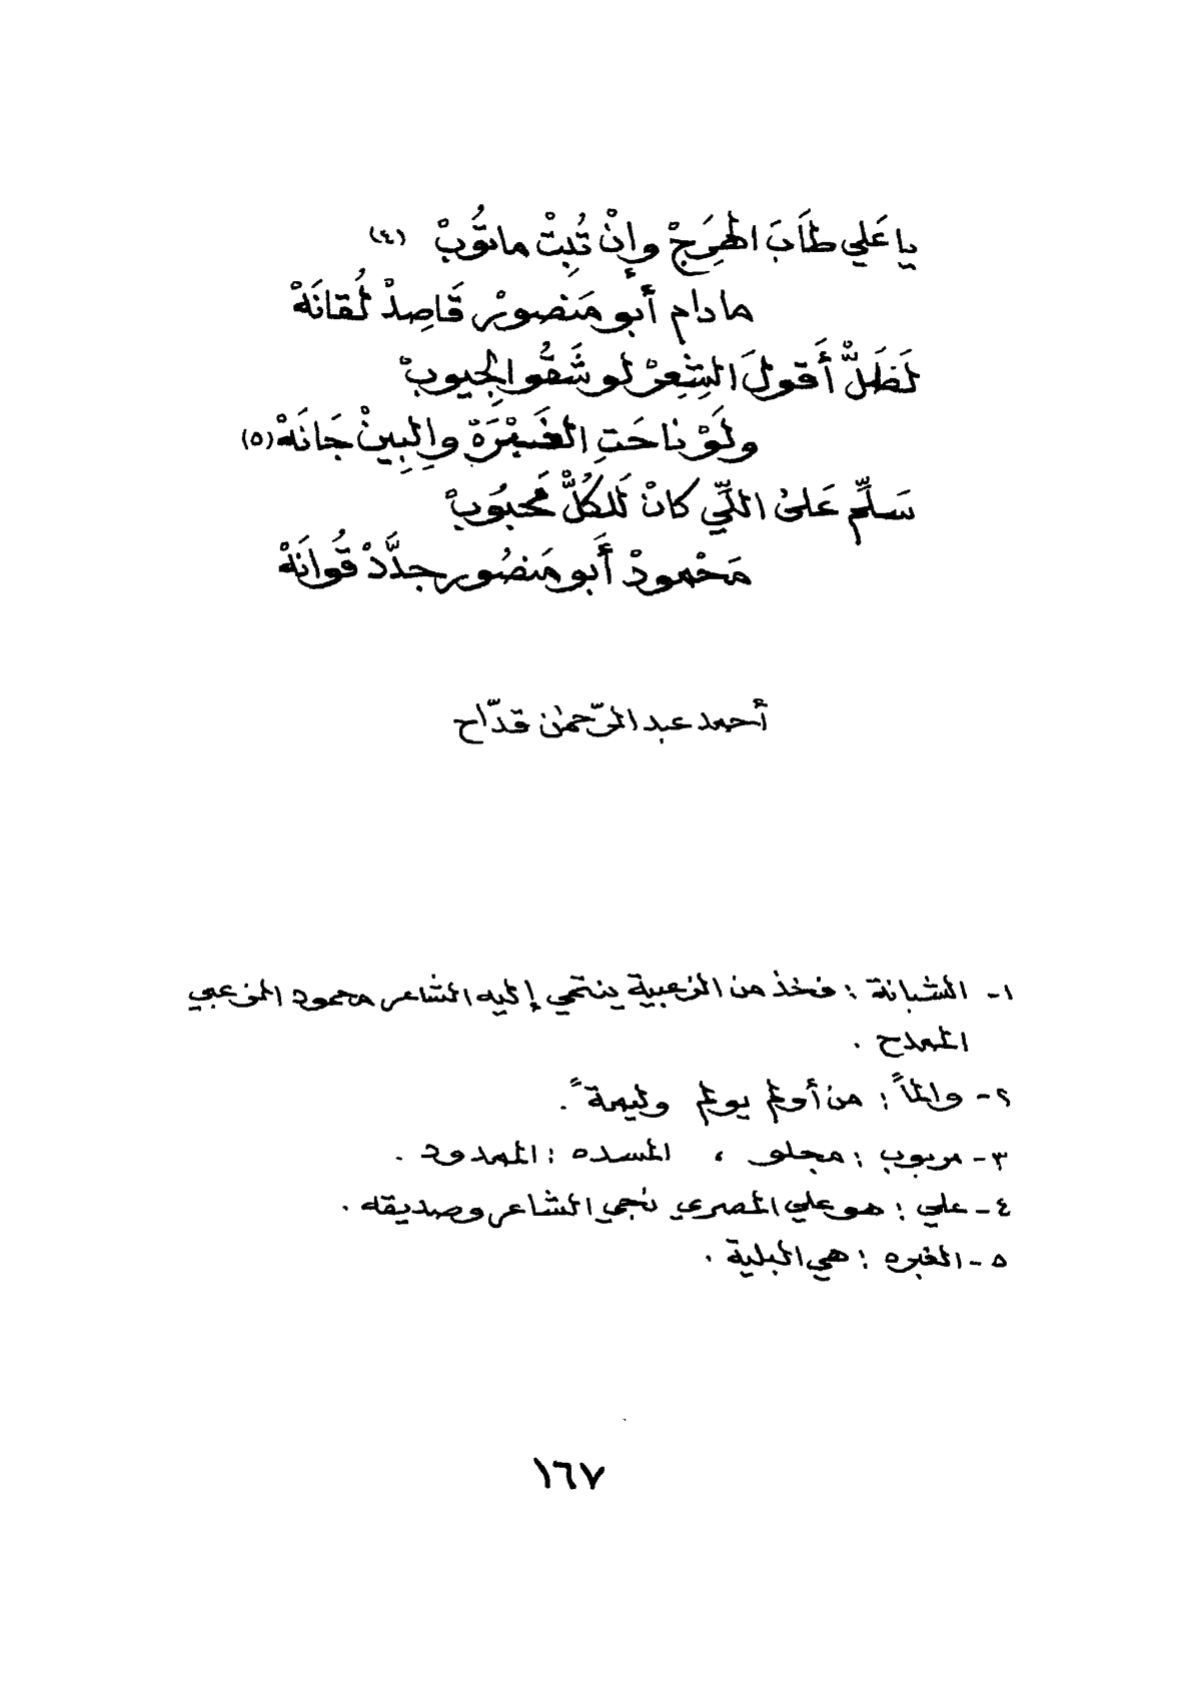 يا عَلي طَابَ الهِرَجْ وإِنْ تُبِتْ ماتُوبْ (٤)
مادام أَبو مَنصورْ قَاصِدْ لُقانَهْ
لَضَلَّ أَقولَ الشِعِرْ لو شَقُّوا الجِيوبْ
ولَوْ ناحَتِ الغَبْرَهْ والبِينْ جَانَهْ (٥)
سَلِّم عَلىْ اللّي كانْ لَلكُلّْ مَحبُوبْ
مَحْمودْ أَبو مَنصُور جدَّدْ قُوانَهْ
أحمد عبد الرّحمٰن قدّاح
١- الشبانة : فخذ من الزعبية ينتمي إليه الشاعر محمود الزعبي
المداح .
٢- والماً : من أولم يولم وليمة ً .
٣- مربوب : مجلو ، المسده : الممدود .
٤- علي : هو علي المصري نجي الشاعر وصديقه .
٥- الغبره : هي البلية .
١٦٧